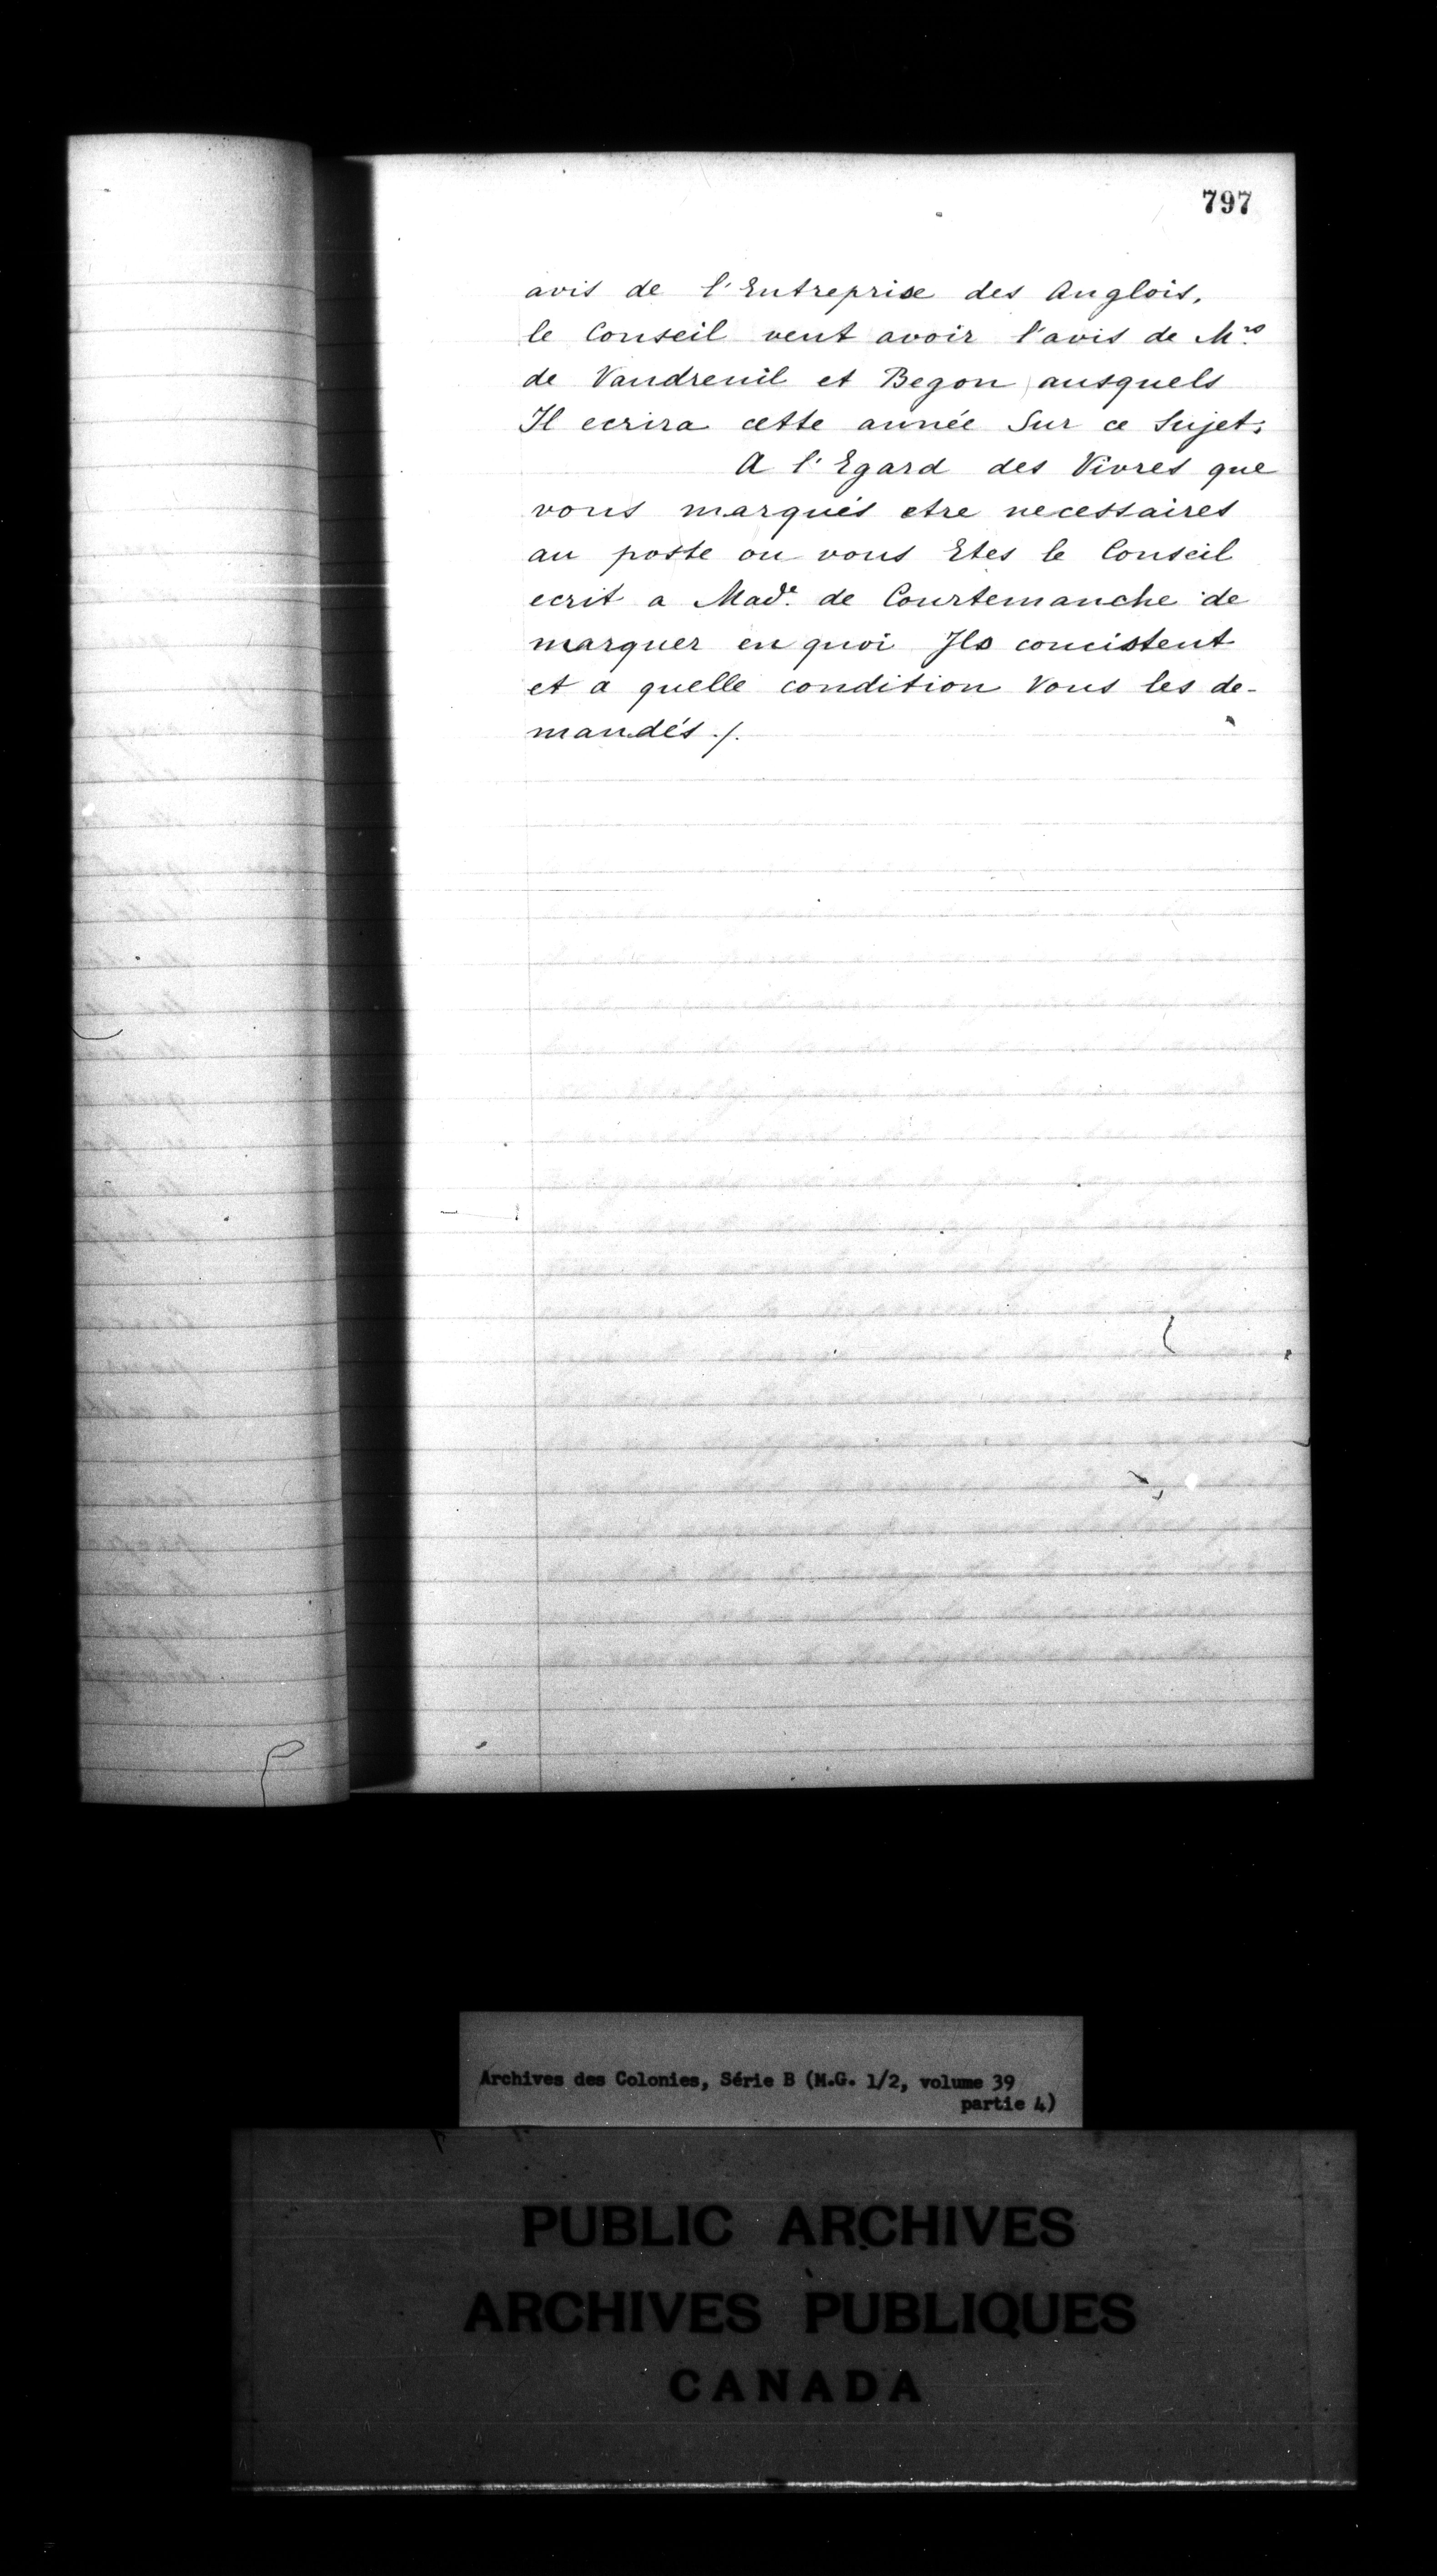 797
avis de l'Entreprise des Anglois,
le Conseil veut avoir l'avis de M.rs
de Vaudreuil et Begon ausquels
Il ecrira cette année Sur ce Sujet.
A l'Egard des Vivres que
vous marqués etre necessaires
au poste ou vous Etes le Conseil
ecrit a Mad.e de Courtemanche de
marquer en quoi Ils concistent
et a quelle condition Vous les de-
mandés ./.
Archives des Colonies, Série B (M.G. 1/2, volume 39
partie 4)
PUBLIC ARCHIVES
ARCHIVES PUBLIQUES
CANADA